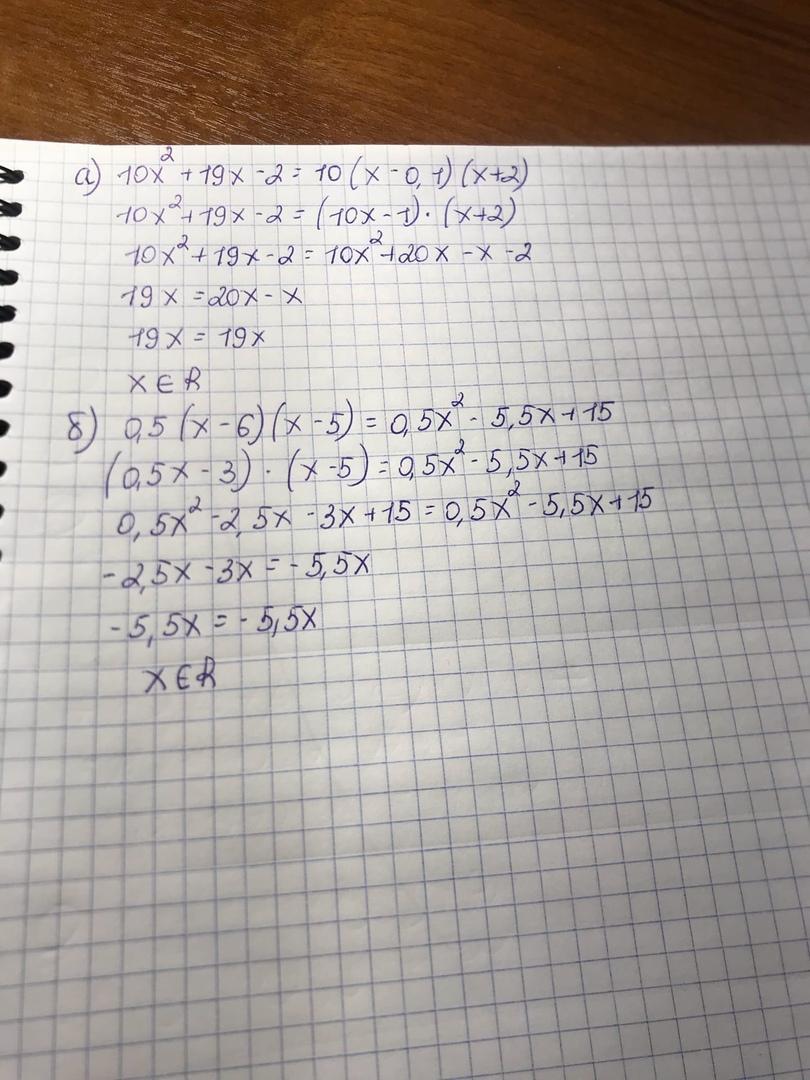 а) 10x² + 19x - 2 = 10 (x - 0,1) (x+2)
10x² + 19x - 2 = (10x - 1) · (x+2)
10x² + 19x - 2 = 10x² + 20x - x - 2
19x = 20x - x
19x = 19x
x ∈ R
б) 0,5 (x - 6) (x - 5) = 0,5x² - 5,5x + 15
(0,5x - 3) · (x - 5) = 0,5x² - 5,5x + 15
0,5x² - 2,5x - 3x + 15 = 0,5x² - 5,5x + 15
- 2,5x - 3x = - 5,5x
- 5,5x = - 5,5x
x ∈ R